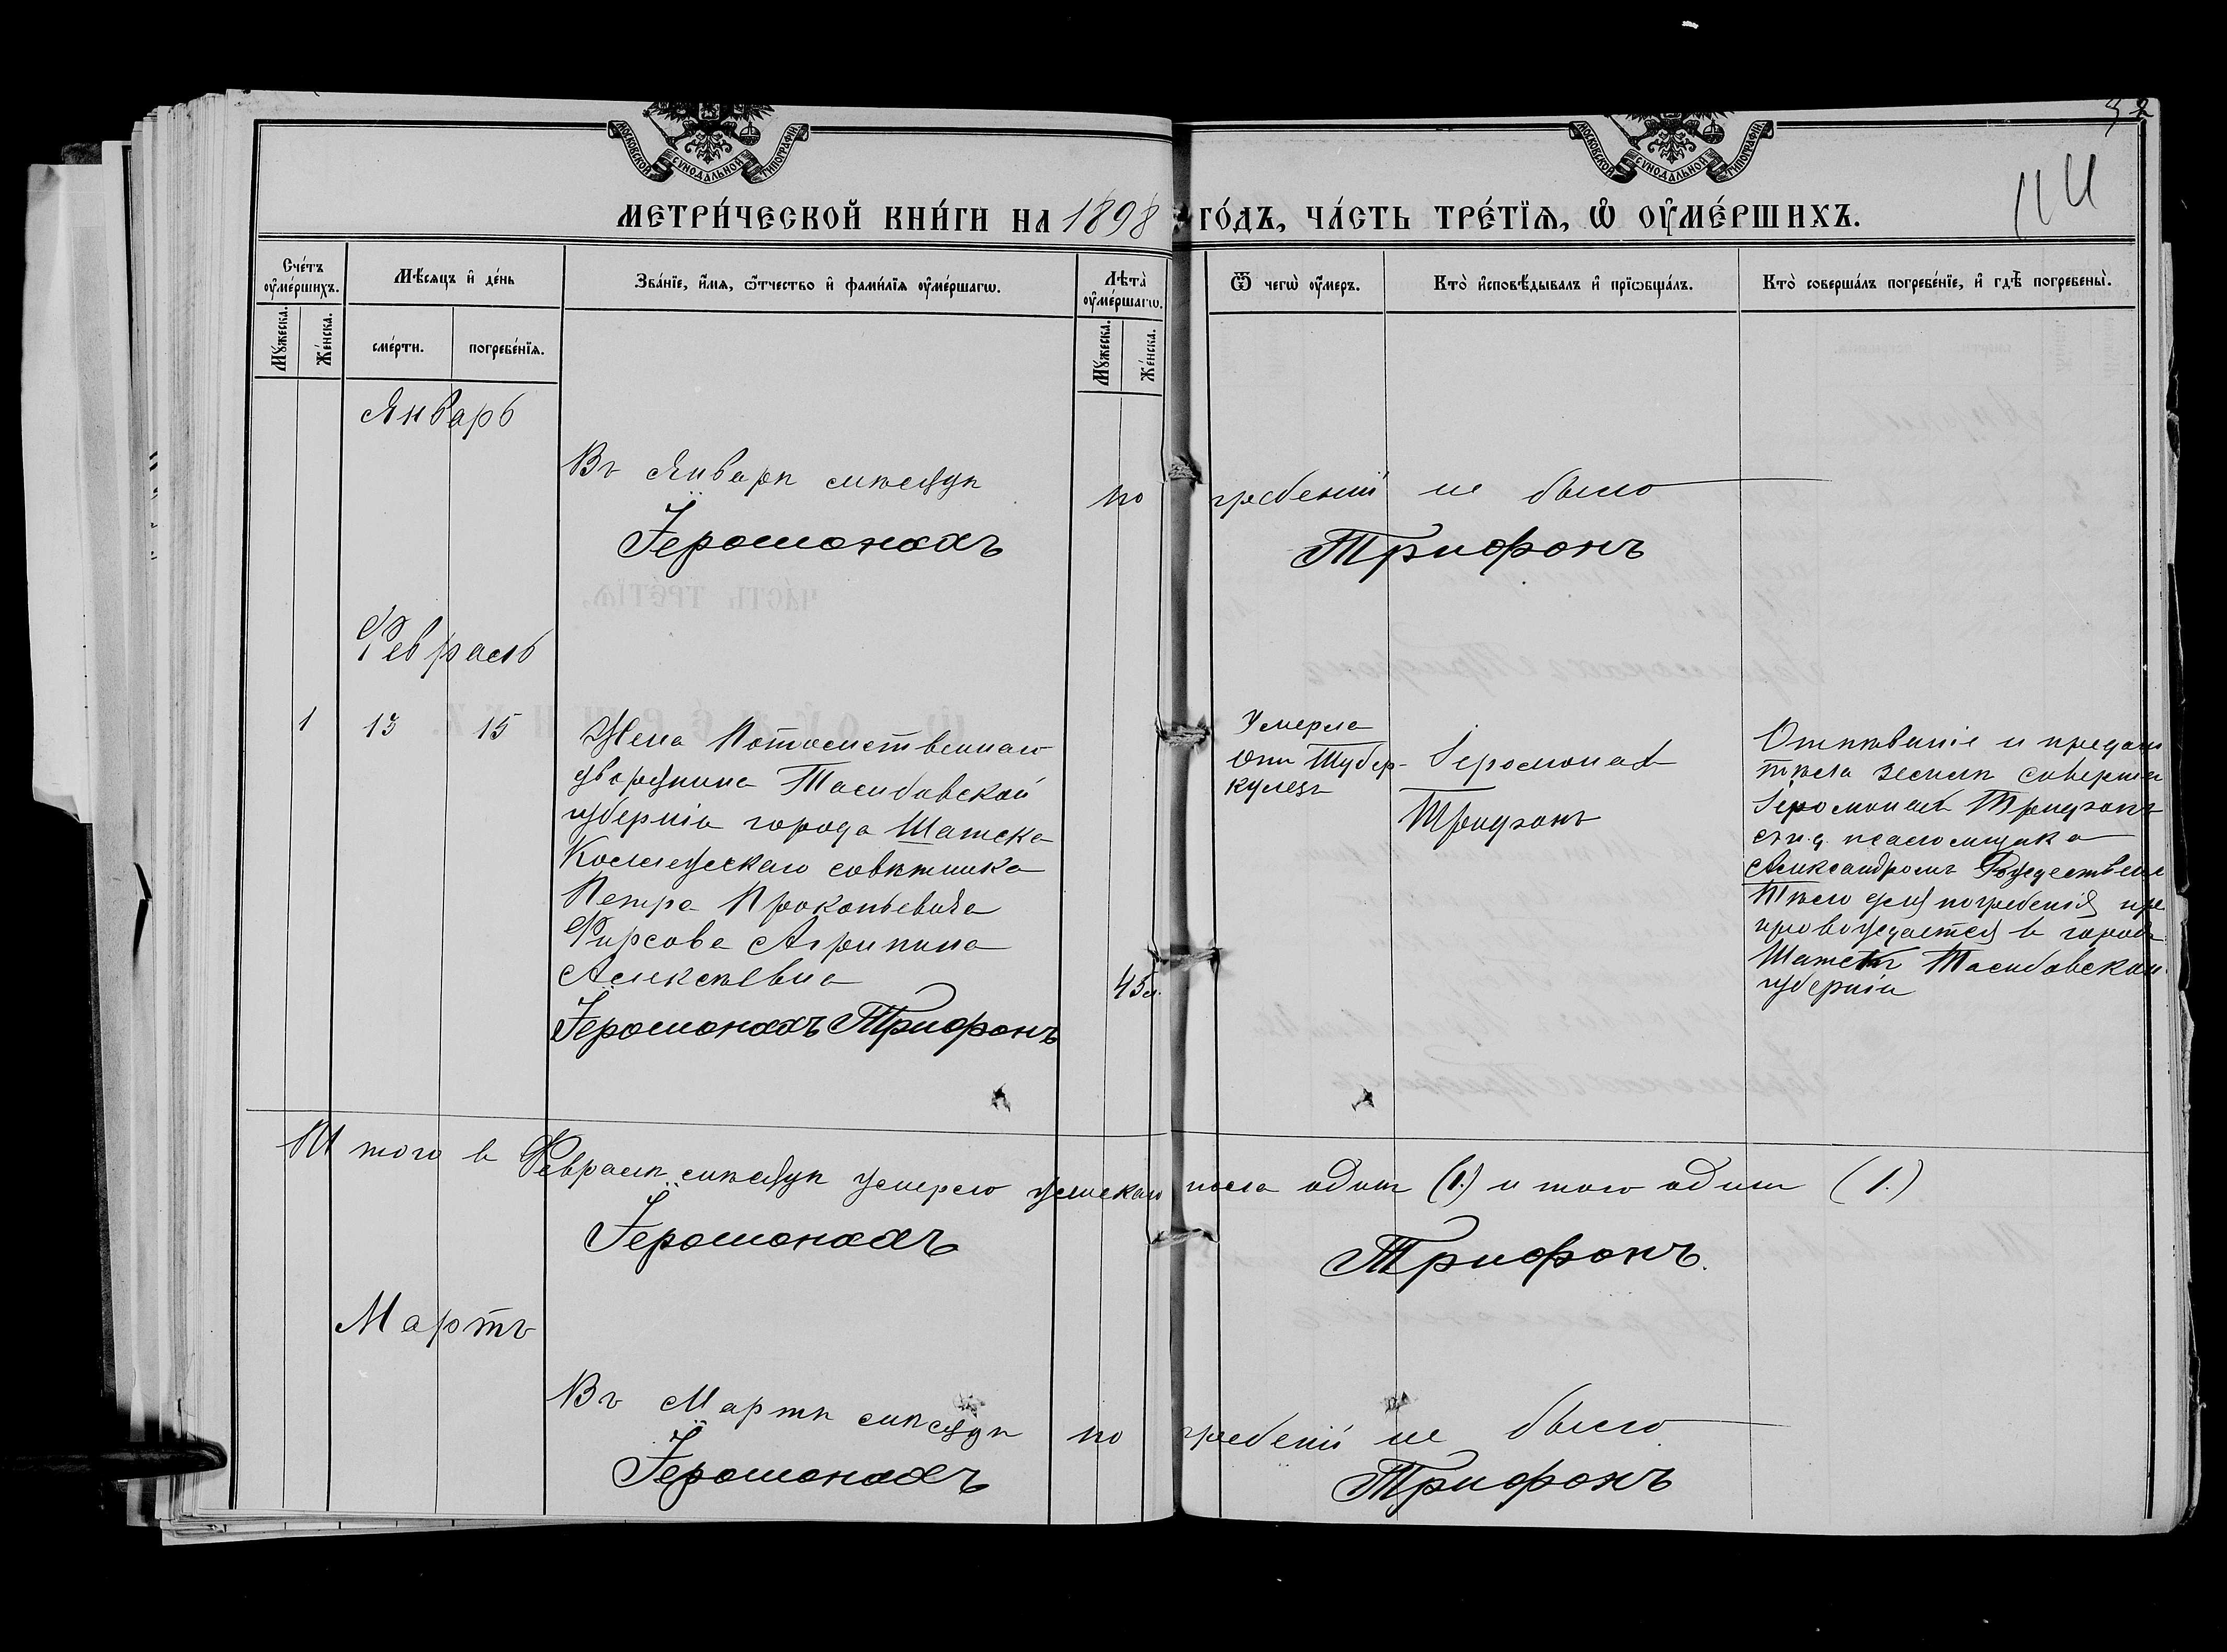 МОСКОВСКОЙ СѴНОДАЛЬНОЙ ТИПОГРАФІИ
МОСКОВСКОЙ СѴНОДАЛЬНОЙ ТИПОГРАФІИ
32
МЕТРИ́ЧЕСКОЙ КНИ́ГИ НА 1898 ГО́ДЪ, ЧА́СТЬ ТРЕ́ТЇѦ, Ѡ҆ ОУ҆МЕ́РШИХЪ.
Сче́тъ оу҆ме́ршихъ.
Мꙋ́жеска.
Же́нска.
Мѣ́сяцъ и҆ де́нь
сме́рти.
погребе́нїѧ.
Зва́нїе, и҆́мѧ, ѻ҆́тчество и҆ фами́лїѧ оу҆ме́ршагѡ.
Лѣта̀ оу҆ме́ршагѡ.
Мꙋ́жеска.
Же́нска.
Ѿ чегѡ̀ оу҆́меръ.
Кто̀ и҆сповѣ́дывалъ и҆ прїѡбща́лъ.
Кто̀ соверша́лъ погребе́нїе, и҆ гдѣ̀ погребены̀.
Январь
Въ Январѣ мѣсяцѣ погребеній не было
Іеромонахъ Трифонъ
Февраль
1 13 15
Жена Потомственнаго
дворянина Тамбовской
губерніи города Шатска
Коллежскаго совѣтника
Петра Прокопьевича
Фирсова Агрипина
Алексѣевна
45 л.
Іеромонахъ Трифонъ
Умерла
отъ Тубер-
кулеза
Іеромонах
Трифонъ
Отпѣваніе и предан
тѣла землѣ соверше
Іеромонах Трифонъ
съ и.д. псаломщика
Александромъ Рождествен
Тѣло для погребенія пре
провождается в город
Шатскъ Тамбовской
губерніи
Итого в Февралѣ мѣсяцѣ умерло женскаго пола один (1.) итого один (1.)
Іеромонахъ Трифонъ.
Мартъ
Въ Мартѣ мѣсяцѣ погребеній не было
Іеромонахъ Трифонъ